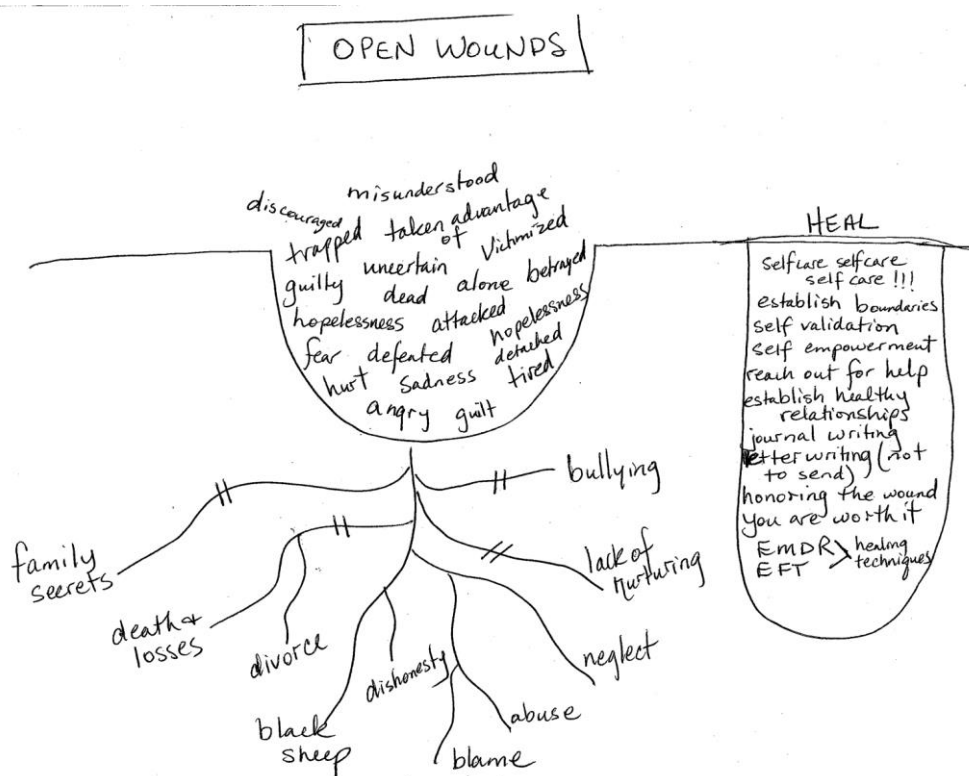 OPEN WOUNDS
misunderstood
discouraged
trapped taken advantage
of
guilty uncertain victimized
dead alone betrayed
hopelessness attacked hopelessness
fear defeated detached
hurt sadness tired
angry guilt
HEAL
selfcare selfcare
self care !!!
establish boundaries
self validation
self empowerment
reach out for help
establish healthy
relationships
journal writing
letter writing (not
to send)
honoring the wound
you are worth it
EMDR
EFT
healing
techniques
bullying
family
secrets
lack of
nurturing
death &
losses
divorce
dishonesty
neglect
black
sheep
abuse
blame